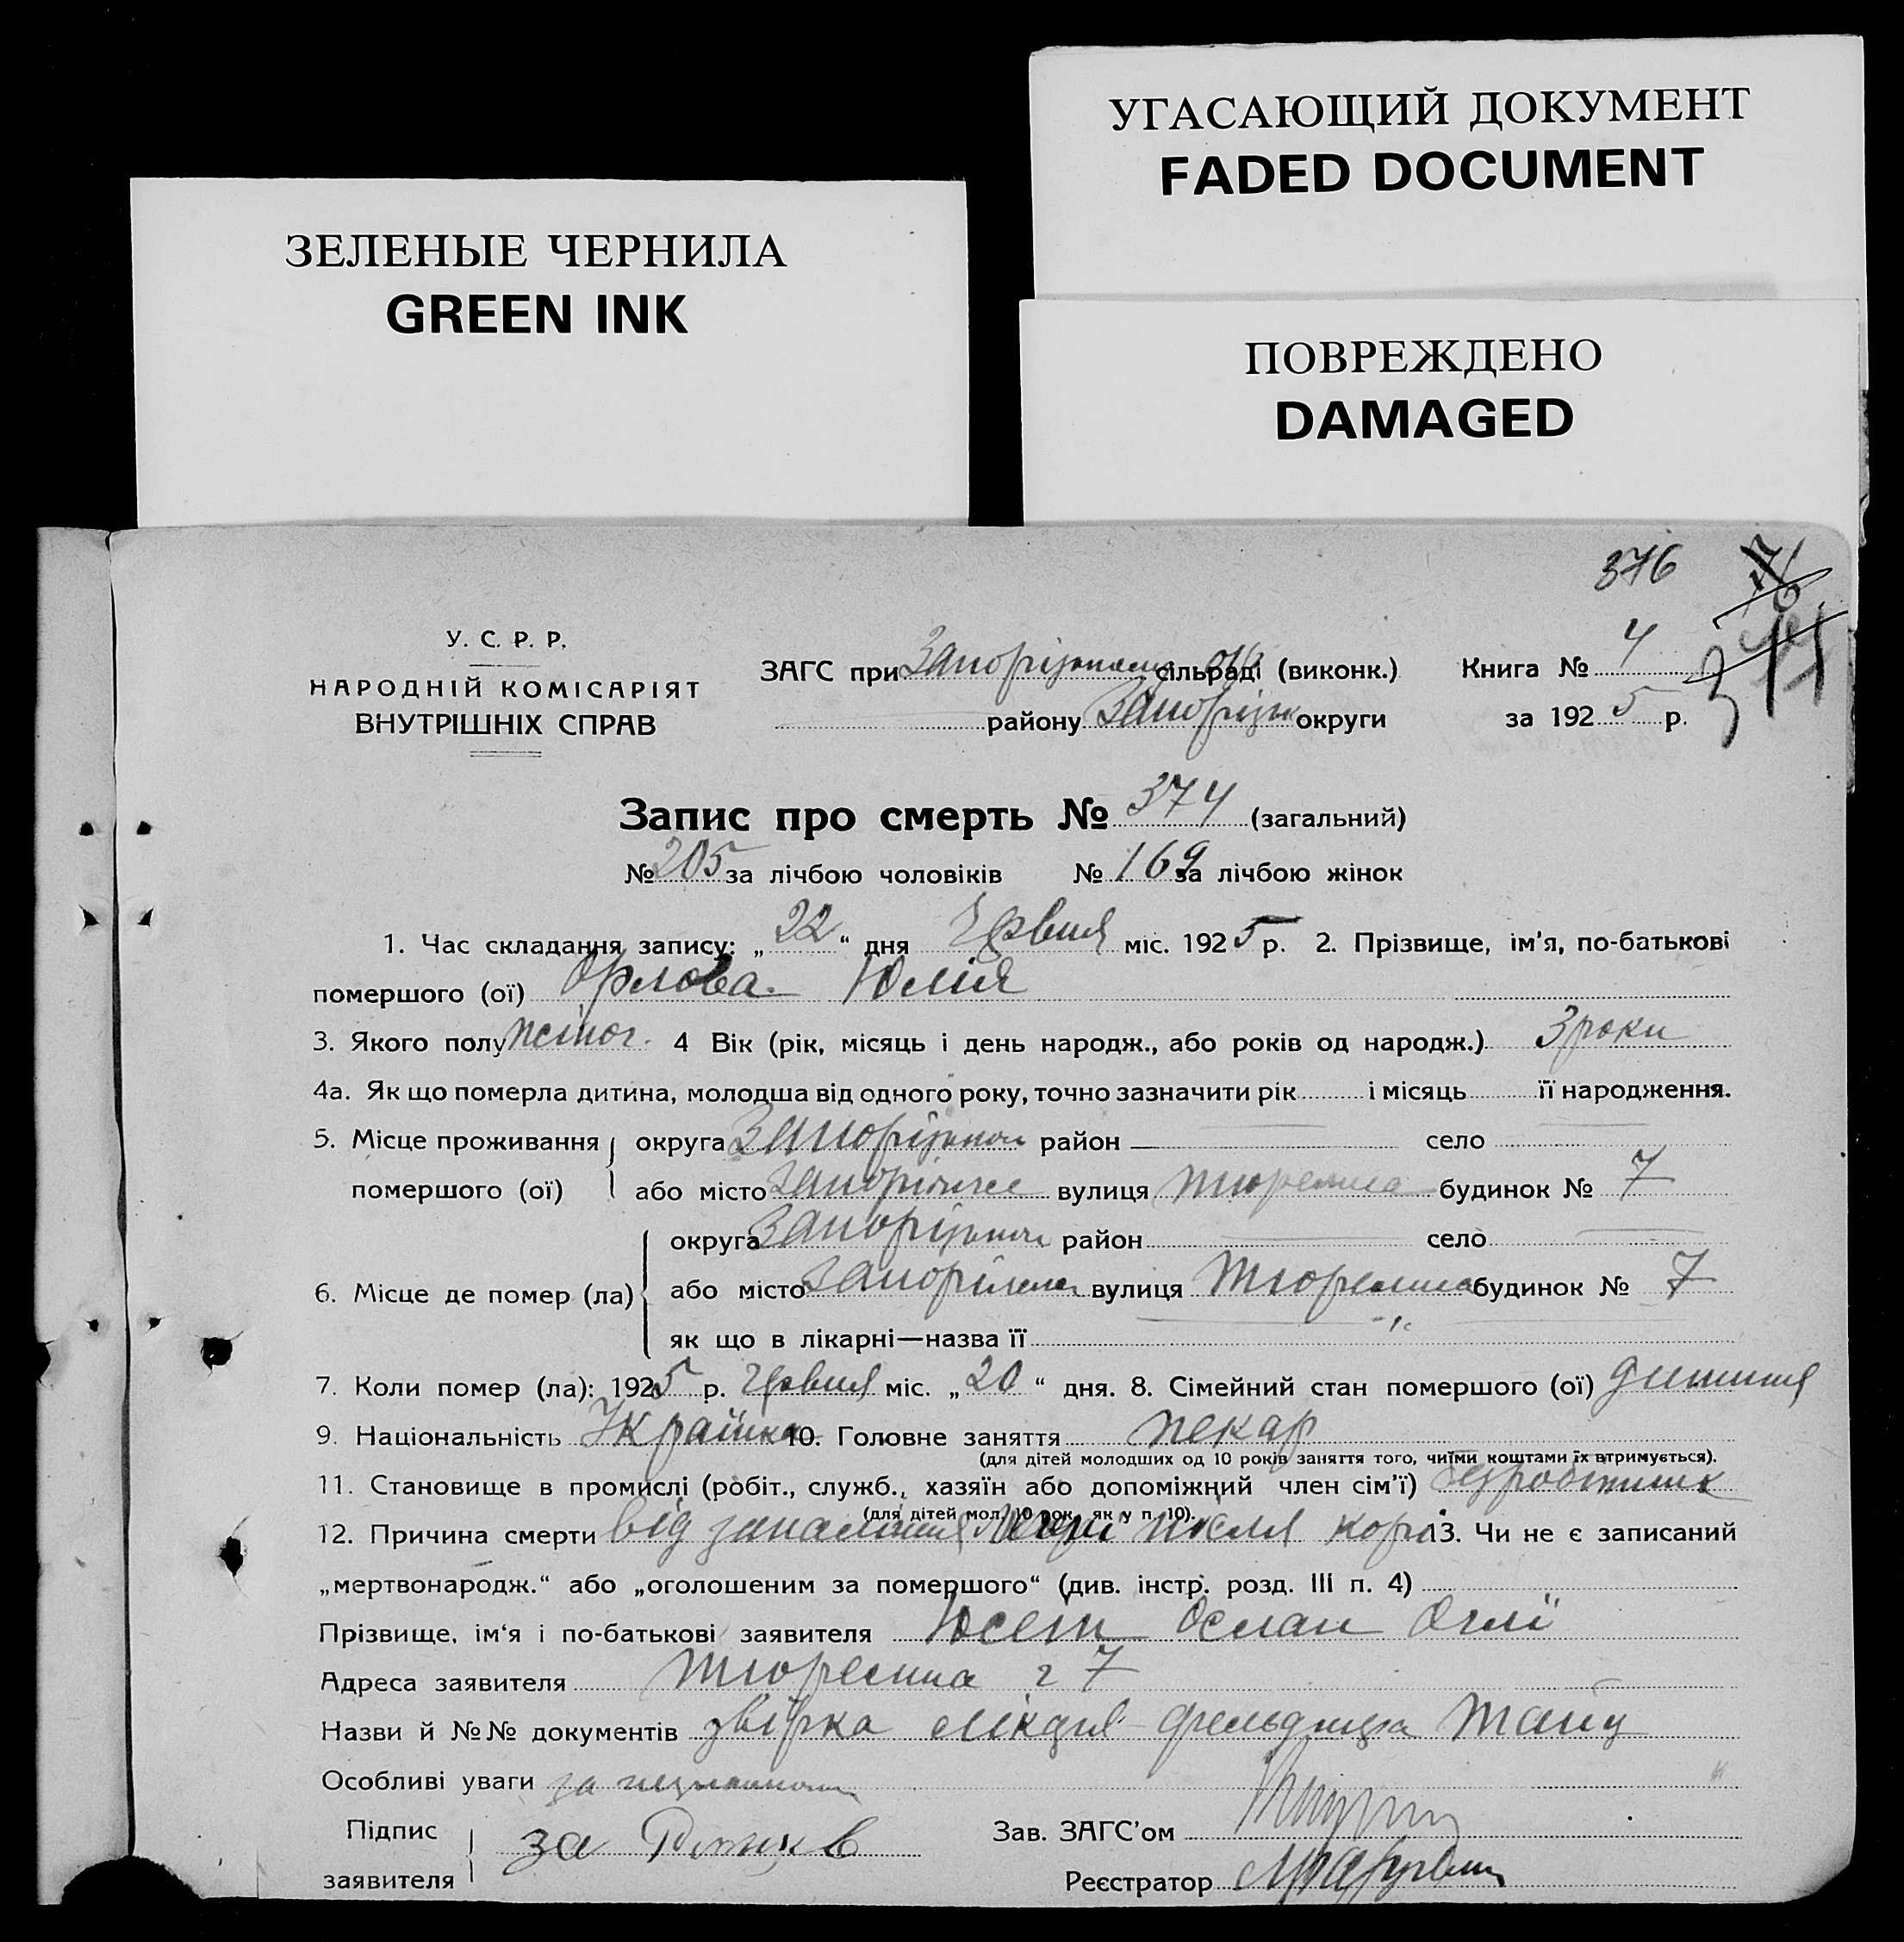 УГАСАЮЩИЙ ДОКУМЕНТ
FADED DOCUMENT
ЗЕЛЕНЫЕ ЧЕРНИЛА
GREEN INK
ПОВРЕЖДЕНО
DAMAGED
376
У. С. Р. Р.
НАРОДНІЙ КОМІСАРІЯТ
ВНУТРІШНІХ СПРАВ
ЗАГС при сільраді (виконк.) Книга № 4
району Запоріжк округи за 1925 р.
Запис про смерть № 374 (загальний)
№ 205 за лічбою чоловіків № 169 за лічбою жінок
1. Час складання запису: „22“ дня Червня міс. 1925 р. 2. Прізвище, ім’я, по-батькові
помершого (ої) Орлова Юлія
3. Якого полу жіноч. 4 Вік (рік, місяць і день народж., або років од народж.) 3 роки
4а. Як що померла дитина, молодша від одного року, точно зазначити рік і місяць її народження.
5. Місце проживання округа район село
помершого (ої) або місто Запоріжже вулиця Тюремна будинок № 7
округа район село
6. Місце де помер (ла) або місто вулиця Тюремна будинок № 7
як що в лікарні—назва її
7. Коли помер (ла): 1925 р. Червня міс. „20“ дня. 8. Сімейний стан помершого (ої) дитина
9. Національність Українка 10. Головне заняття пекар
(для дітей молодших од 10 років заняття того, чиїми коштами їх втримується).
11. Становище в промислі (робіт., служб., хазяїн або допоміжний член сім’ї) безробітник
(для дітей мол. 10 рок. як у п. 10).
12. Причина смерти від запалення після кори 13. Чи не є записаний
„мертвонародж.“ або „оголошеним за помершого“ (див. інстр. розд. III п. 4)
Прізвище, ім‘я і по-батькові заявителя Юсеп Ослан Оглі
Адреса заявителя Тюремна 7
Назви й №№ документів
Особливі уваги
Підпис
заявителя за
Зав. ЗАГС’ом
Реєстратор